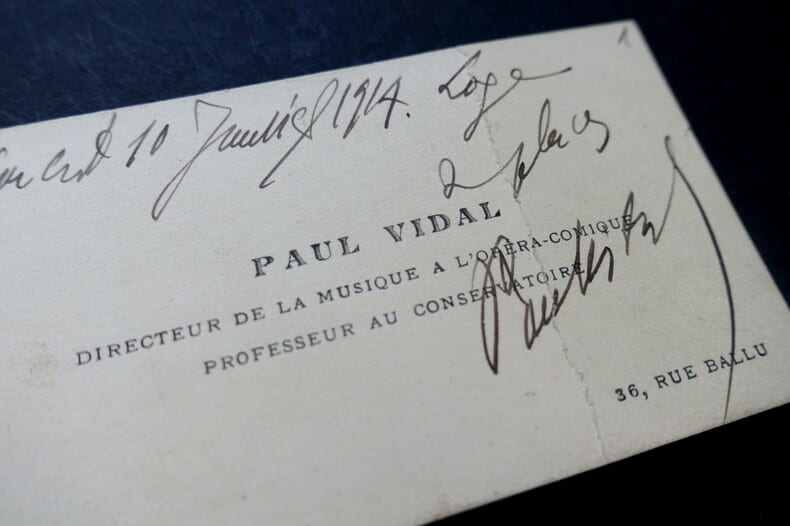 10 Janvier 1914. Loge
2 places
PAUL VIDAL
DIRECTEUR DE LA MUSIQUE A L'OPÉRA-COMIQUE
PROFESSEUR AU CONSERVATOIRE
36, RUE BALLU